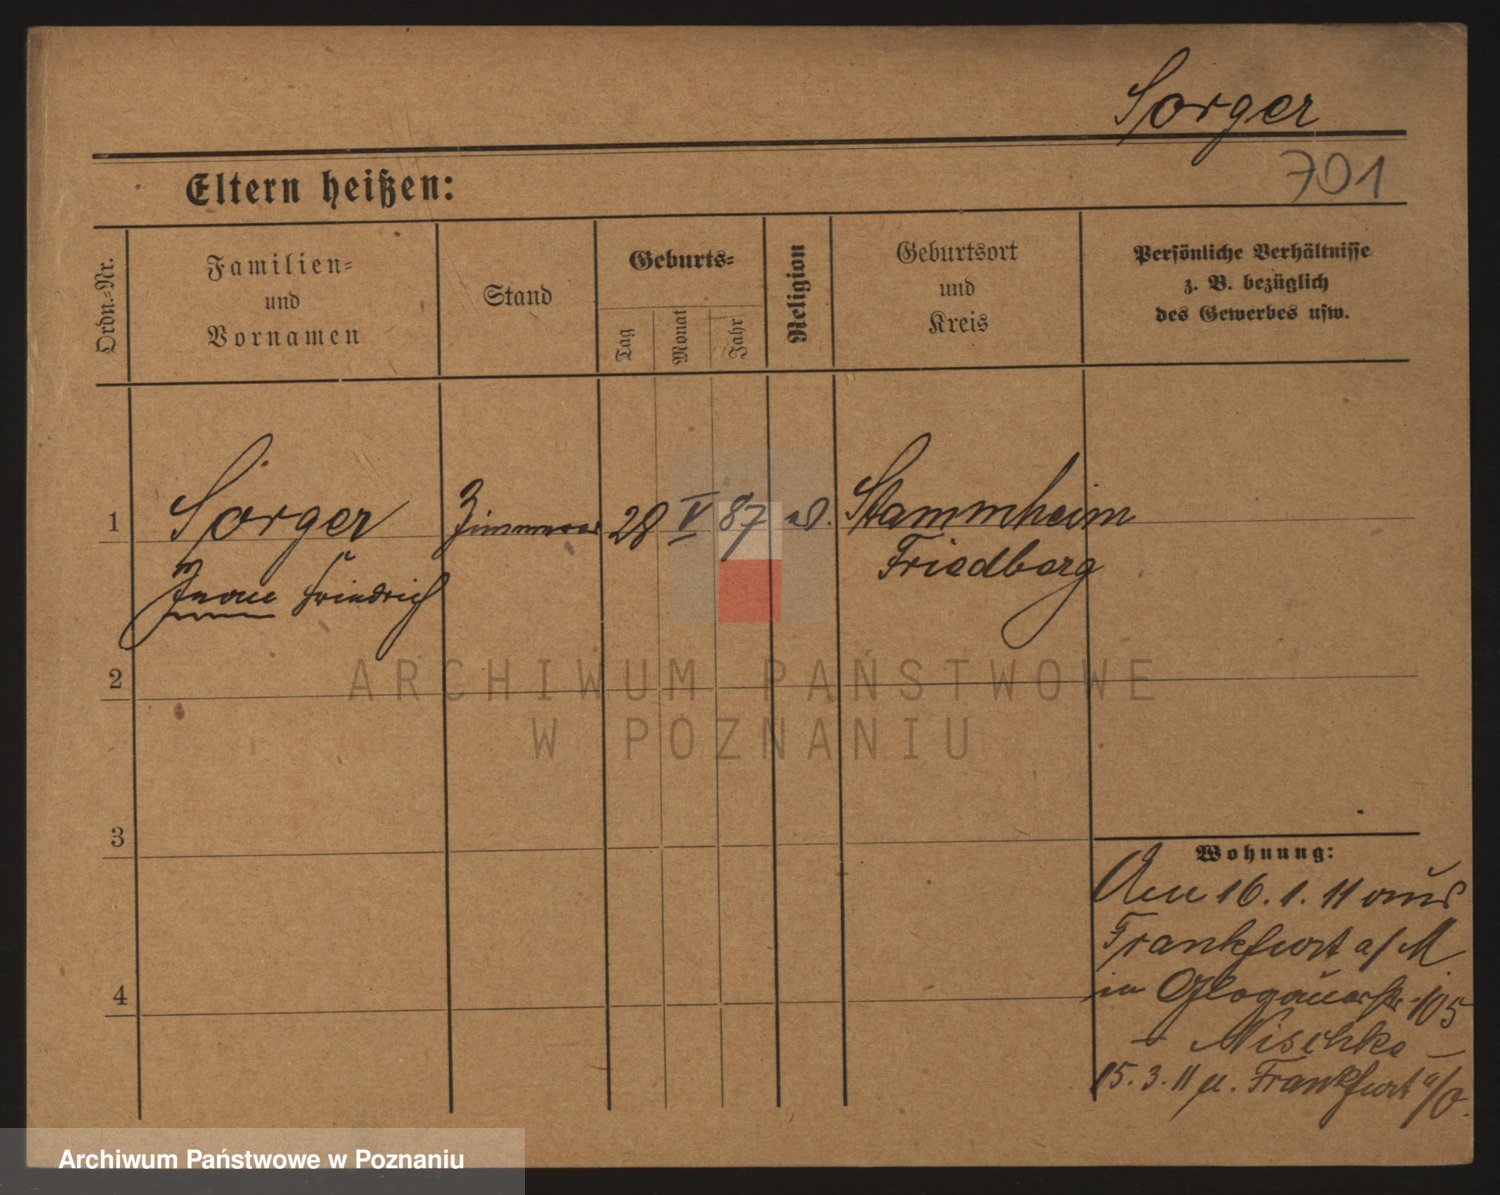 Sorger
701
Eltern heißen:
Ordn.=Nr.
Familien=
und
Vornamen
Stand
Geburts=
Tag
Monat
Jahr
Religion
Geburtsort
und
Kreis
Persönliche Verhältnisse
z. B. bezüglich
des Gewerbes usw.
1
Sorger
Friedrich
Zimmerer
28 V 87
Stammheim
Friedberg
2
3
4
Wohnung:
16. 1. 11 aus
Frankfurt a/M
in Glogauerstr. 105
– Mischke –
15. 3. 11 n. Frankfurt a/O.
ARCHIWUM PAŃSTWOWE
W POZNANIU
Archiwum Państwowe w Poznaniu